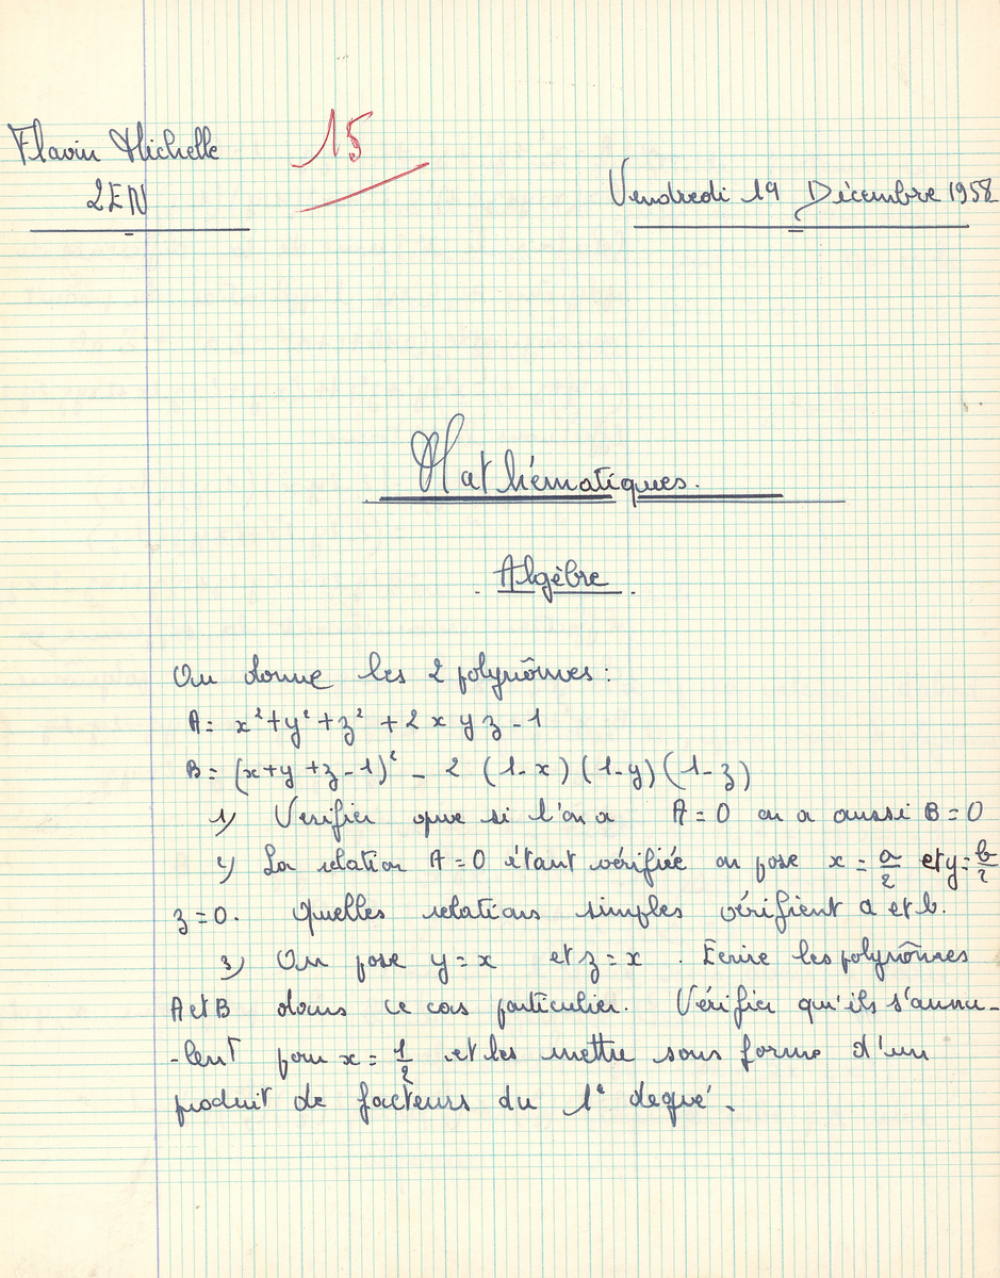 Flavin Michelle
15
2EN
Vendredi 19 Décembre 1958
Mathématiques.
Algèbre
On donne les 2 polynômes :
A = x²+y²+z² + 2 x y z - 1
B = (x+y+z-1)² - 2 (1-x)(1-y)(1-z)
1) Verifier que si l'on a A = 0 on a aussi B = 0
2) La relation A = 0 étant vérifiée on pose x = a/2 et y = b/2
z = 0. Quelles relations simples vérifient a et b.
3) On pose y = x et z = x. Ecrire les polynômes
A et B dans ce cas particulier. Vérifier qu'ils s'annu-
-lent pour x = 1/2 et les mettre sous forme d'un
produit de facteurs du 1e degré.